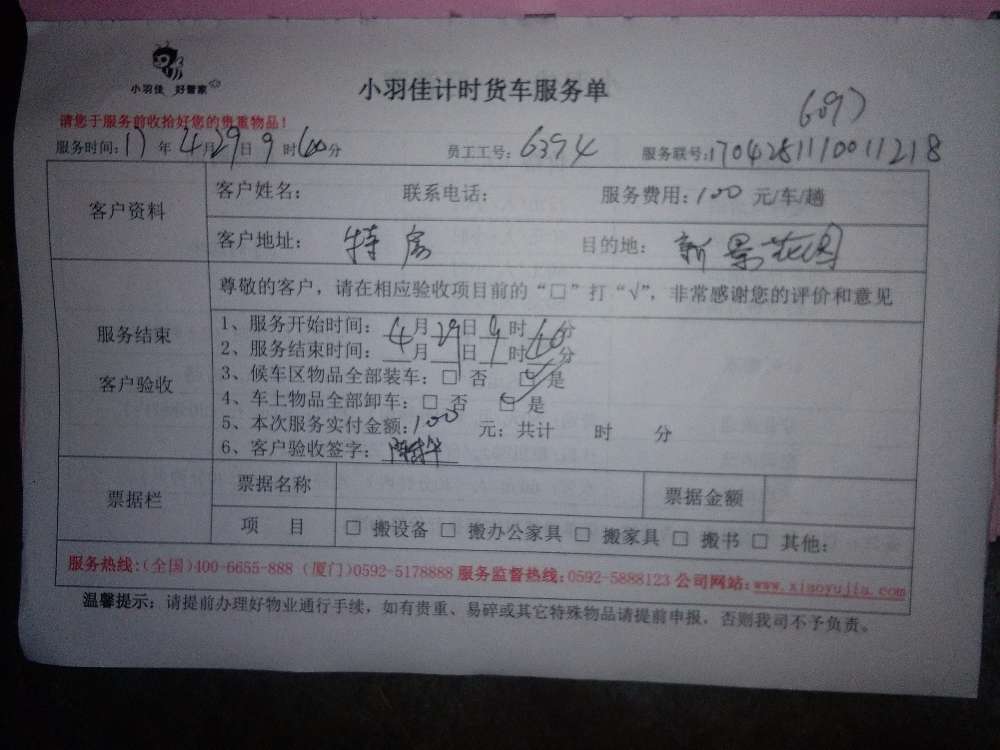 小羽佳 好管家
小羽佳计时货车服务单
6097
请您于服务前收拾好您的贵重物品!
服务时间:17年4月29日9时00分 员工工号:6394 服务联号:1704281110011218
客户资料
客户姓名: 联系电话: 服务费用:100 元/车/趟
客户地址: 特房 目的地: 新景花园
服务结束
客户验收
尊敬的客户，请在相应验收项目前的“□”打“√”，非常感谢您的评价和意见
1、服务开始时间: 4月29日9时 分
2、服务结束时间: 月 日 时 分
3、候车区物品全部装车: □ 否 □ 是
4、车上物品全部卸车: □ 否 □ 是
5、本次服务实付金额:100 元; 共计 时 分
6、客户验收签字:
票据栏
票据名称 票据金额
项 目 □ 搬设备 □ 搬办公家具 □ 搬家具 □ 搬书 □ 其他:
服务热线:(全国)400-6655-888 (厦门)0592-5178888 服务监督热线:0592-5888123 公司网站:www.xiaoyujia.com
温馨提示: 请提前办理好物业通行手续，如有贵重、易碎或其它特殊物品请提前申报，否则我司不予负责。